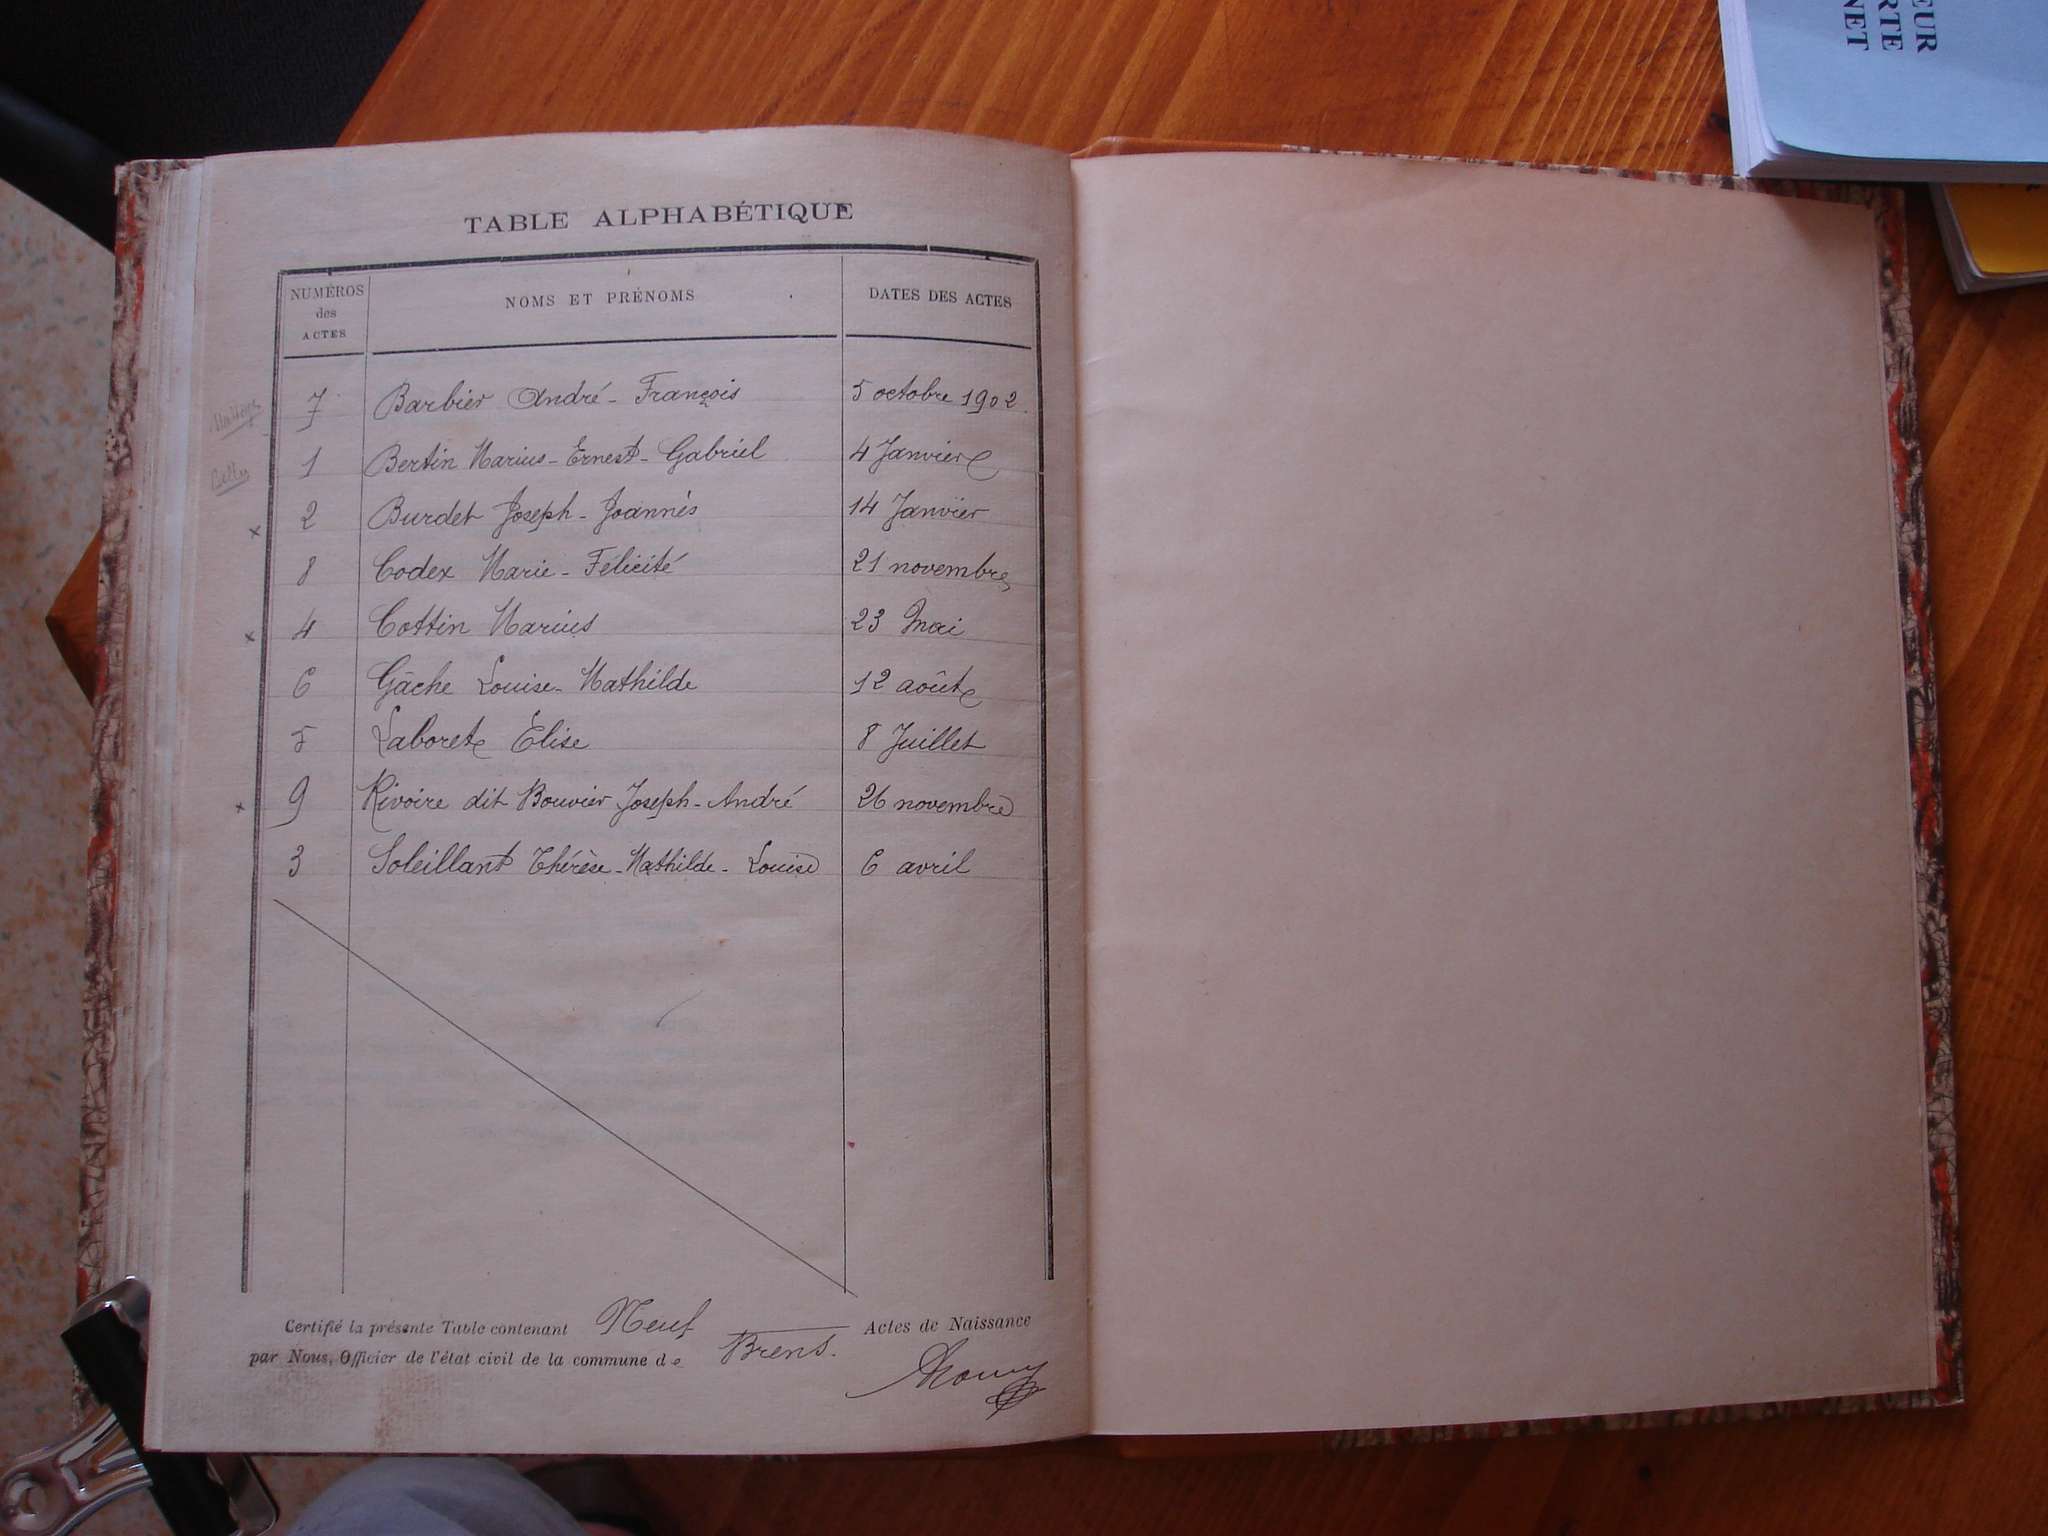 EUR
RTE
NET
TABLE ALPHABÉTIQUE
NUMÉROS des ACTES NOMS ET PRÉNOMS DATES DES ACTES
7 Barbier André-François 5 octobre 1902
1 Bertin Marius-Ernest-Gabriel 4 Janvier
2 Burdet Joseph-Joannès 14 Janvier
8 Codex Marie-Félicité 21 novembre
4 Cottin Marius 23 Mai
6 Gâche Louise-Mathilde 12 août
5 Laboret Élise 8 Juillet
9 Rivoire dit Bouvier Joseph-André 26 novembre
3 Soleillant Thérèse-Mathilde-Louise 6 avril
Certifié la présente Table contenant Neuf Actes de Naissance
par Nous, Officier de l'état civil de la commune de Brens.